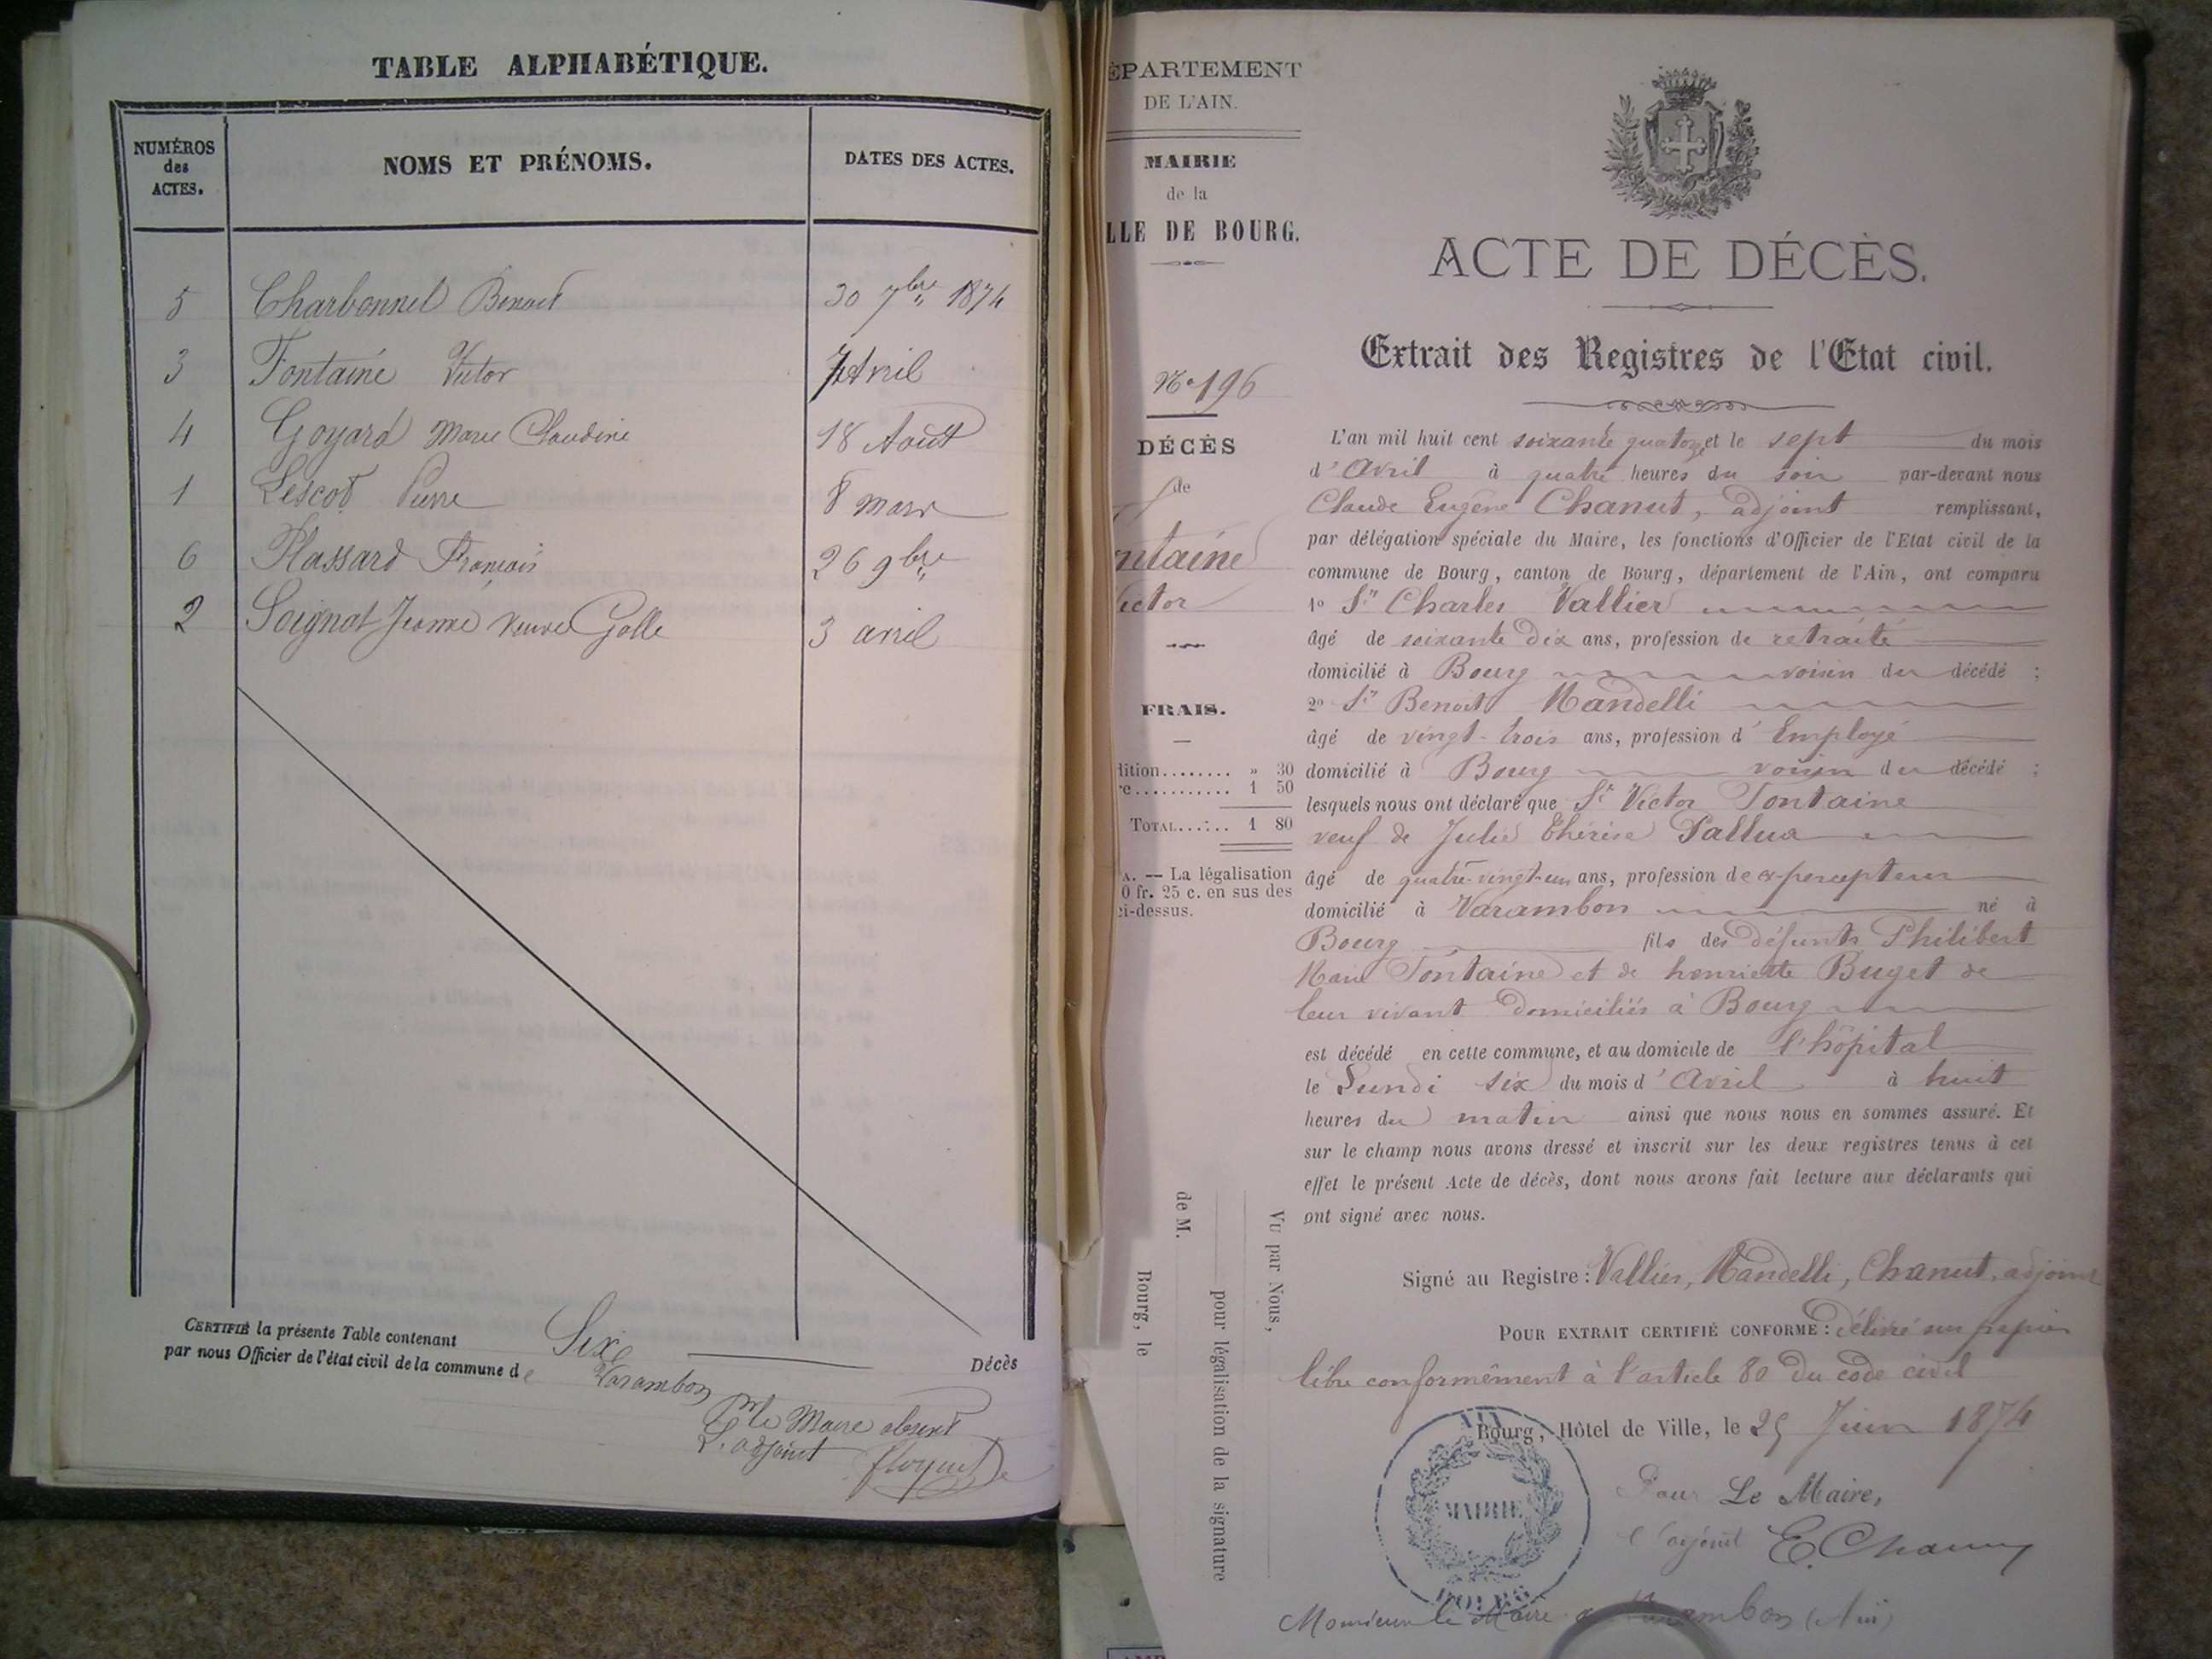 TABLE ALPHABÉTIQUE.
NUMÉROS des ACTES.
NOMS ET PRÉNOMS.
DATES DES ACTES.
5 Charbonnel Benoit 30 7bre 1874
3 Fontaine Victor 7 Avril
4 Goyard Marie Claudine 18 Août
1 Lescot Pierre 8 mars
6 Plassard François 26 9bre
2 Soignat Jeanne veuve Golle 3 avril
CERTIFIÉ la présente Table contenant Six Décès
par nous Officier de l'état civil de la commune de Varambon
Pr le Maire absent
L'adjoint
ÉPARTEMENT
DE L'AIN.
MAIRIE
de la
LLE DE BOURG.
No 196
DÉCÈS
de
ntaine
ictor
FRAIS.
dition........ » 30
re........... 1 50
TOTAL....... 1 80
A. — La légalisation
0 fr. 25 c. en sus des
ci-dessus.
Vu par Nous,
pour légalisation de la signature
de M.
Bourg, le
ACTE DE DÉCÈS.
Extrait des Registres de l'Etat civil.
L'an mil huit cent soixante quatorze et le sept du mois
d'Avril à quatre heures du soir par-devant nous
Claude Eugène Chanut, adjoint remplissant,
par délégation spéciale du Maire, les fonctions d'Officier de l'Etat civil de la
commune de Bourg, canton de Bourg, département de l'Ain, ont comparu
1o Sr Charles Vallier
âgé de soixante dix ans, profession de retraité
domicilié à Bourg voisin du décédé ;
2o Sr Benoit Mandelli
âgé de vingt-trois ans, profession d'Employé
domicilié à Bourg voisin du décédé ;
lesquels nous ont déclaré que Sr Victor Fontaine
veuf de Julie Thérèse Pallua
âgé de quatre-vingt-un ans, profession de ex-percepteur
domicilié à Varambon né à
Bourg fils des défunts Philibert
Marie Fontaine et de henriette Buget de
leur vivant domiciliés à Bourg
est décédé en cette commune, et au domicile de l'hôpital
le Lundi six du mois d'Avril à huit
heures du matin ainsi que nous nous en sommes assuré. Et
sur le champ nous avons dressé et inscrit sur les deux registres tenus à cet
effet le présent Acte de décès, dont nous avons fait lecture aux déclarants qui
ont signé avec nous.
Signé au Registre : Vallier, Mandelli, Chanut, adjoint
POUR EXTRAIT CERTIFIÉ CONFORME : délivré sur papier
libre conformément à l'article 80 du code civil
Bourg, Hôtel de Ville, le 25 Juin 1874
Pour Le Maire,
l'adjoint E. Chanut
AIN
MAIRIE
BOURG
Monsieur le Maire de Varambon (Ain)